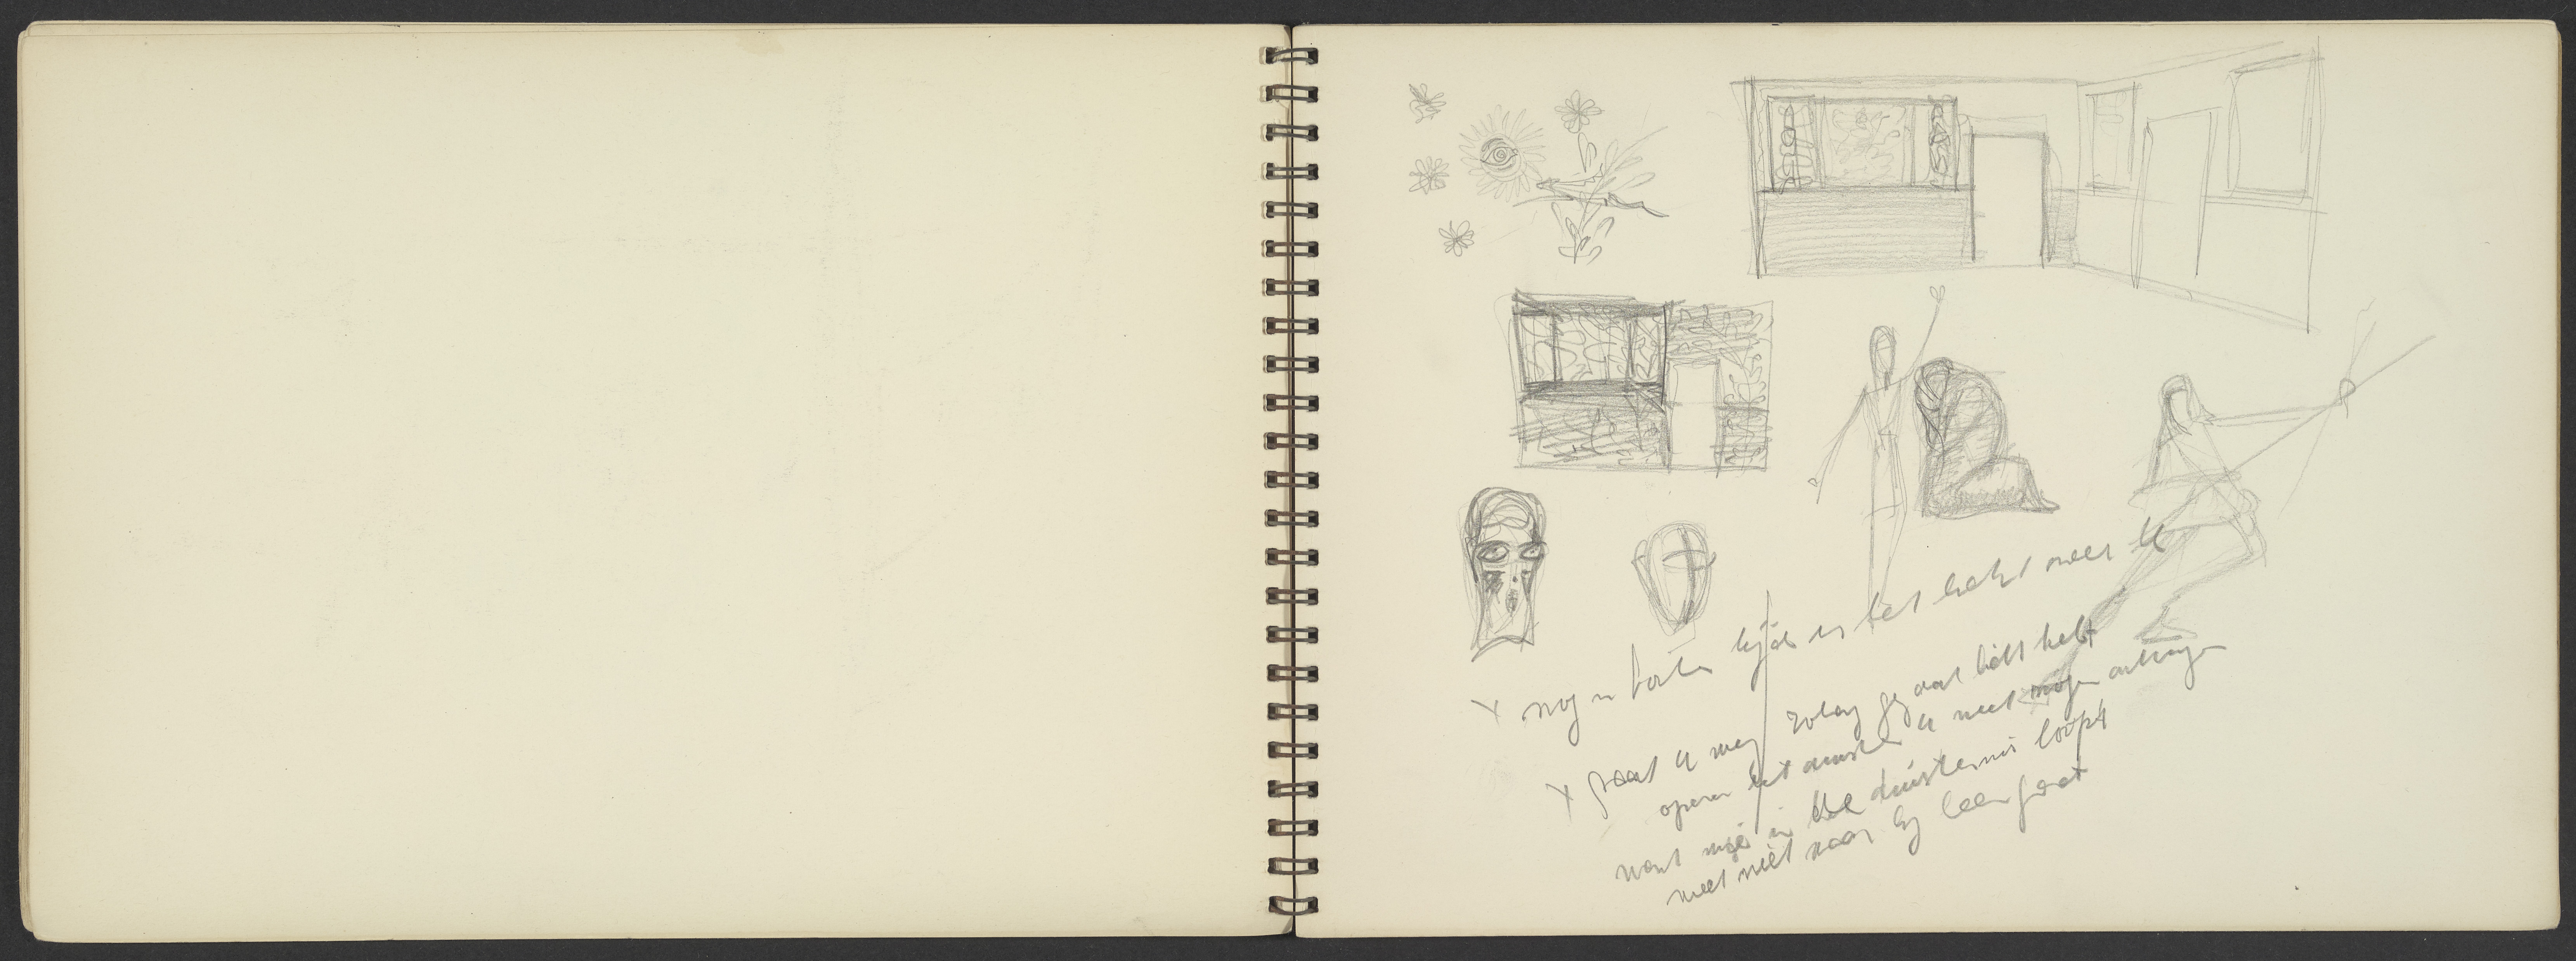 x nog n korte tijd is het licht met u
x gaat u weg zolang gij dat licht hebt
opdat het duister u niet moge
want wie in de duisternis loopt
weet niet waar hij heen gaat